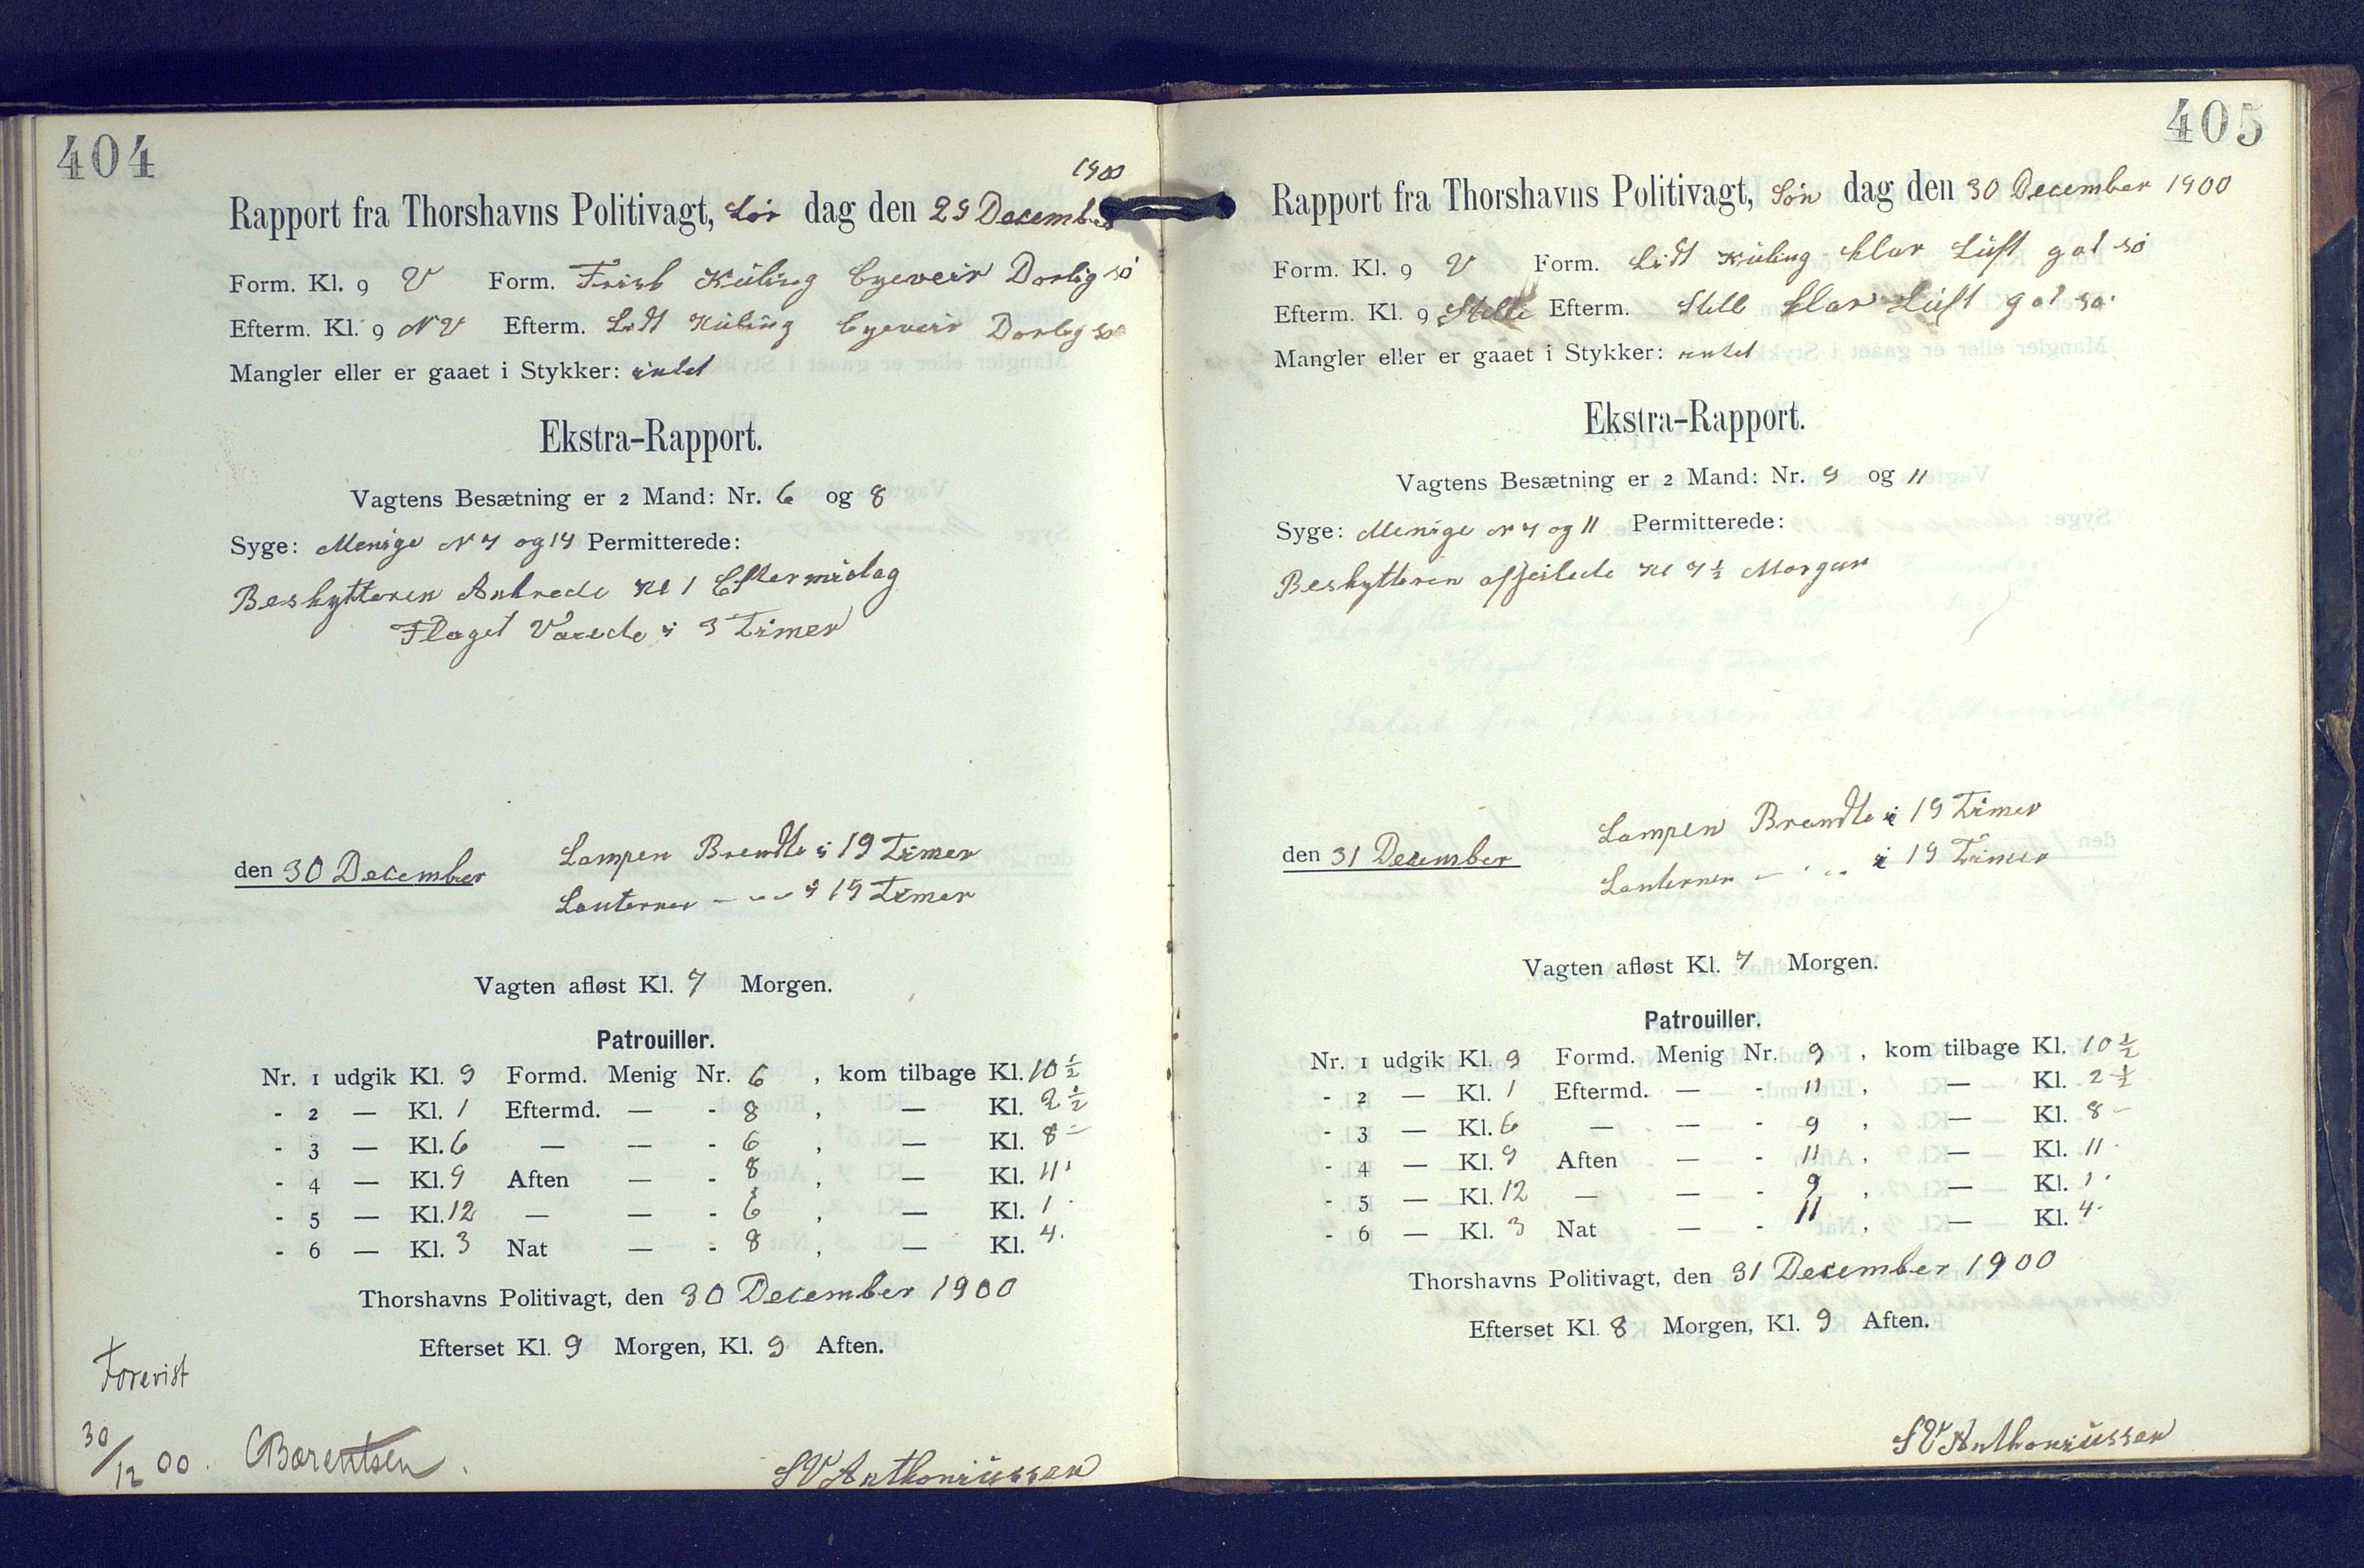 404
1900
Rapport fra Thorshavns Politivagt, Lør dag den 29 December
Form. Kl. 9 V Form. Frisk Küling Eyeveir Dorlig sö
Efterm. Kl. 9 NV Efterm. Lidt Küling Eyeveir Dorlig sö
Mangler eller er gaaet i Stykker: intet
Ekstra-Rapport.
Vagtens Besætning er 2 Mand: Nr. 6 og 8
Syge: Menige N 7 og 14 Permitterede:
Beskytteren Ankrede Kl 1 Eftermidag
Flaget Varede i 3 Timer
den 30 December
Lampen Brendte i 19 Timer
Lanternen – – – i 15 Timer
Vagten afløst Kl. 7 Morgen.
Patrouiller.
Nr. 1 udgik Kl. 9 Formd. Menig Nr. 6 , kom tilbage Kl. 10 ½
- 2 — Kl. 1 Eftermd. — - 8 , — Kl. 2 ½
- 3 — Kl. 6 — — - 6 , — Kl. 8 –
- 4 — Kl. 9 Aften — - 8 , — Kl. 11
- 5 — Kl. 12 — — - 6 , — Kl. 1
- 6 — Kl. 3 Nat — - 8 , — Kl. 4.
Thorshavns Politivagt, den 30 December 1900
Efterset Kl. 9 Morgen, Kl. 9 Aften.
Forevist
30/12 00. CBærentsen.
SVAnthoniüssen
405
Rapport fra Thorshavns Politivagt, Søn dag den 30 December 1900
Form. Kl. 9 V Form. Lidt Küling klar Lüft got sö
Efterm. Kl. 9 Stille Efterm. Stille klar Lüft got sö
Mangler eller er gaaet i Stykker: intet
Ekstra-Rapport.
Vagtens Besætning er 2 Mand: Nr. 9 og 11
Syge: Menige N 7 og 11 Permitterede:
Beskytteren afseilede Kl 7 ½ Morgen
den 31 December
Lampen Brendte i 19 Timer
Lanternen – – – i 19 Timer
Vagten afløst Kl. 7 Morgen.
Patrouiller.
Nr. 1 udgik Kl. 9 Formd. Menig Nr. 9 , kom tilbage Kl. 10 ½
- 2 — Kl. 1 Eftermd. — - 11 , — Kl. 2 ½
- 3 — Kl. 6 — — - 9 , — Kl. 8 –
- 4 — Kl. 9 Aften — - 11 , — Kl. 11
- 5 — Kl. 12 — — - 9 , — Kl. 1
- 6 — Kl. 3 Nat — - 11 , — Kl. 4.
Thorshavns Politivagt, den 31 December 1900
Efterset Kl. 8 Morgen, Kl. 9 Aften.
SVAnthoniüssen